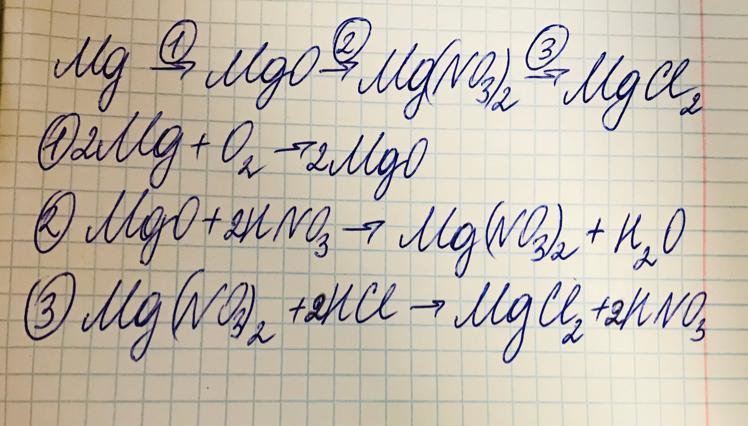 Mg ①→ MgO ②→ Mg(NO₃)₂ ③→ MgCl₂
① 2Mg + O₂ → 2MgO
② MgO + 2HNO₃ → Mg(NO₃)₂ + H₂O
③ Mg(NO₃)₂ + 2HCl → MgCl₂ + 2HNO₃